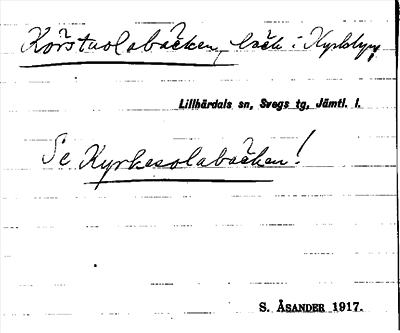 Körstaolabäcken, bäck i Kyrkbyn
Lillhärdals sn, Svegs tg, Jämtl. l.
Se Kyrkesolabäcken!
S. ÅSANDER 1917.